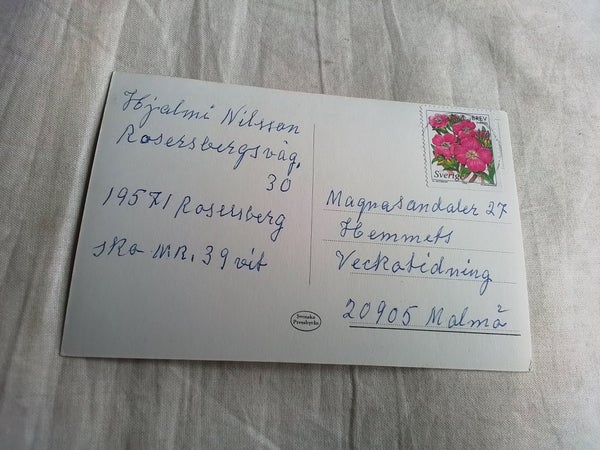 Hjalmi Nilsson
Rosersbergsväg.
30
19571 Rosersberg
sko NR. 39 vit
BREV
Sverige
Magnasandaler 27
Hemmets
Veckotidning
20905 Malmö
Svenska
Pressbyrån